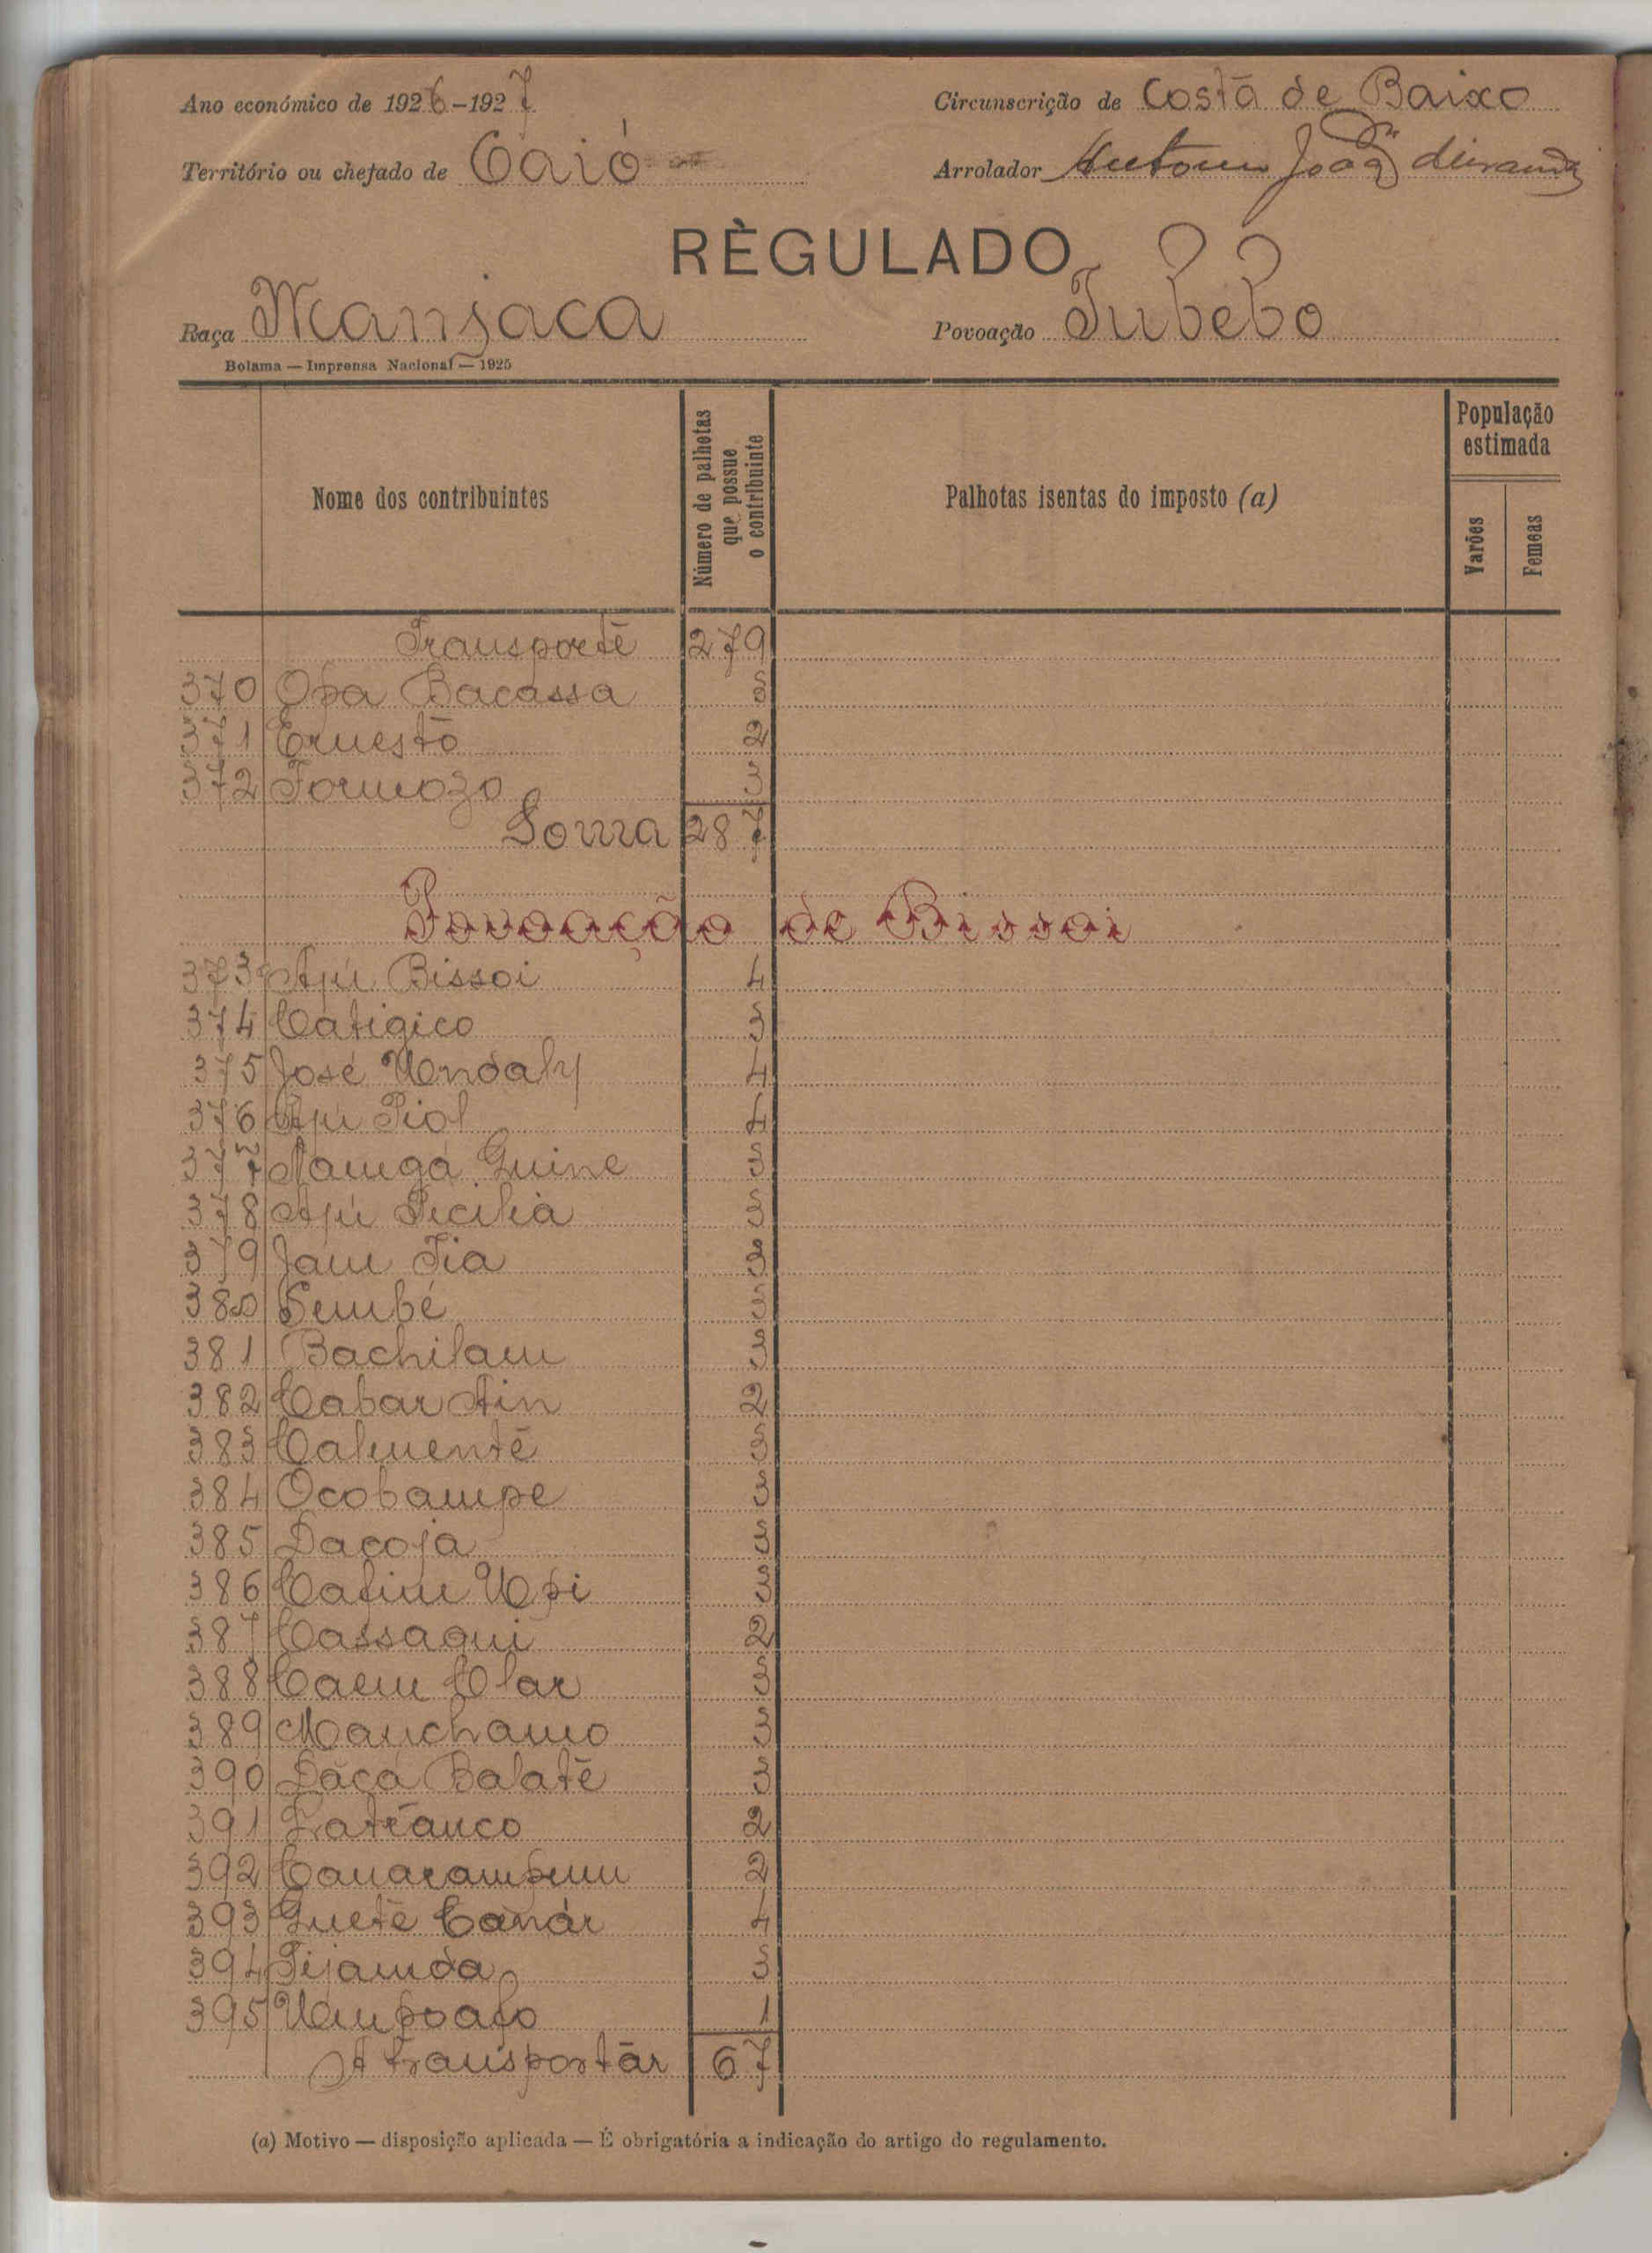 Ano económico de 1926-1927
Circunscrição de Costa de Baixo
Território ou chefado de Caió
Arrolador João
RÈGULADO
Raça Manjaca
Povoação Tubebo
Bolama — Imprensa Nacional — 1925
Nome dos contribuintes
Número de palhotas que possue o contribuinte
Palhotas isentas do imposto (a)
População estimada
Varões
Femeas
Transporte 279
370 Opa Bacassa 3
371 Ernesto 2
372 Formozo 3
Soma 287
Povoação de Bissoi
373 Apú Bissoi 4
374 Catigico 3
375 José Undaly 4
376 Apú Piol 4
377 Namga Guine 3
378 Apú Picilia 3
379 Jam Tia 3
380 Sembé 3
381 Bachilam 3
382 Cabar Ain 2
383 Calmente 3
384 Ocobampe 3
385 Dacoja 3
386 Cafim Upi 3
387 Cassaqui 2
388 Caem Clar 3
389 Manchamo 3
390 Dácá Balate 3
391 Latranco 2
392 2
393 Guete Canár 4
394 Pijamda 3
395 Umpoafo 1
A transportar 67
(a) Motivo — disposição aplicada — É obrigatória a indicação do artigo do regulamento.